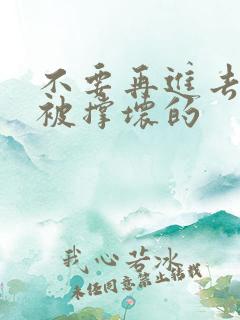 不要再进去
被撑坏的
我心若冰
未经同意禁止转载